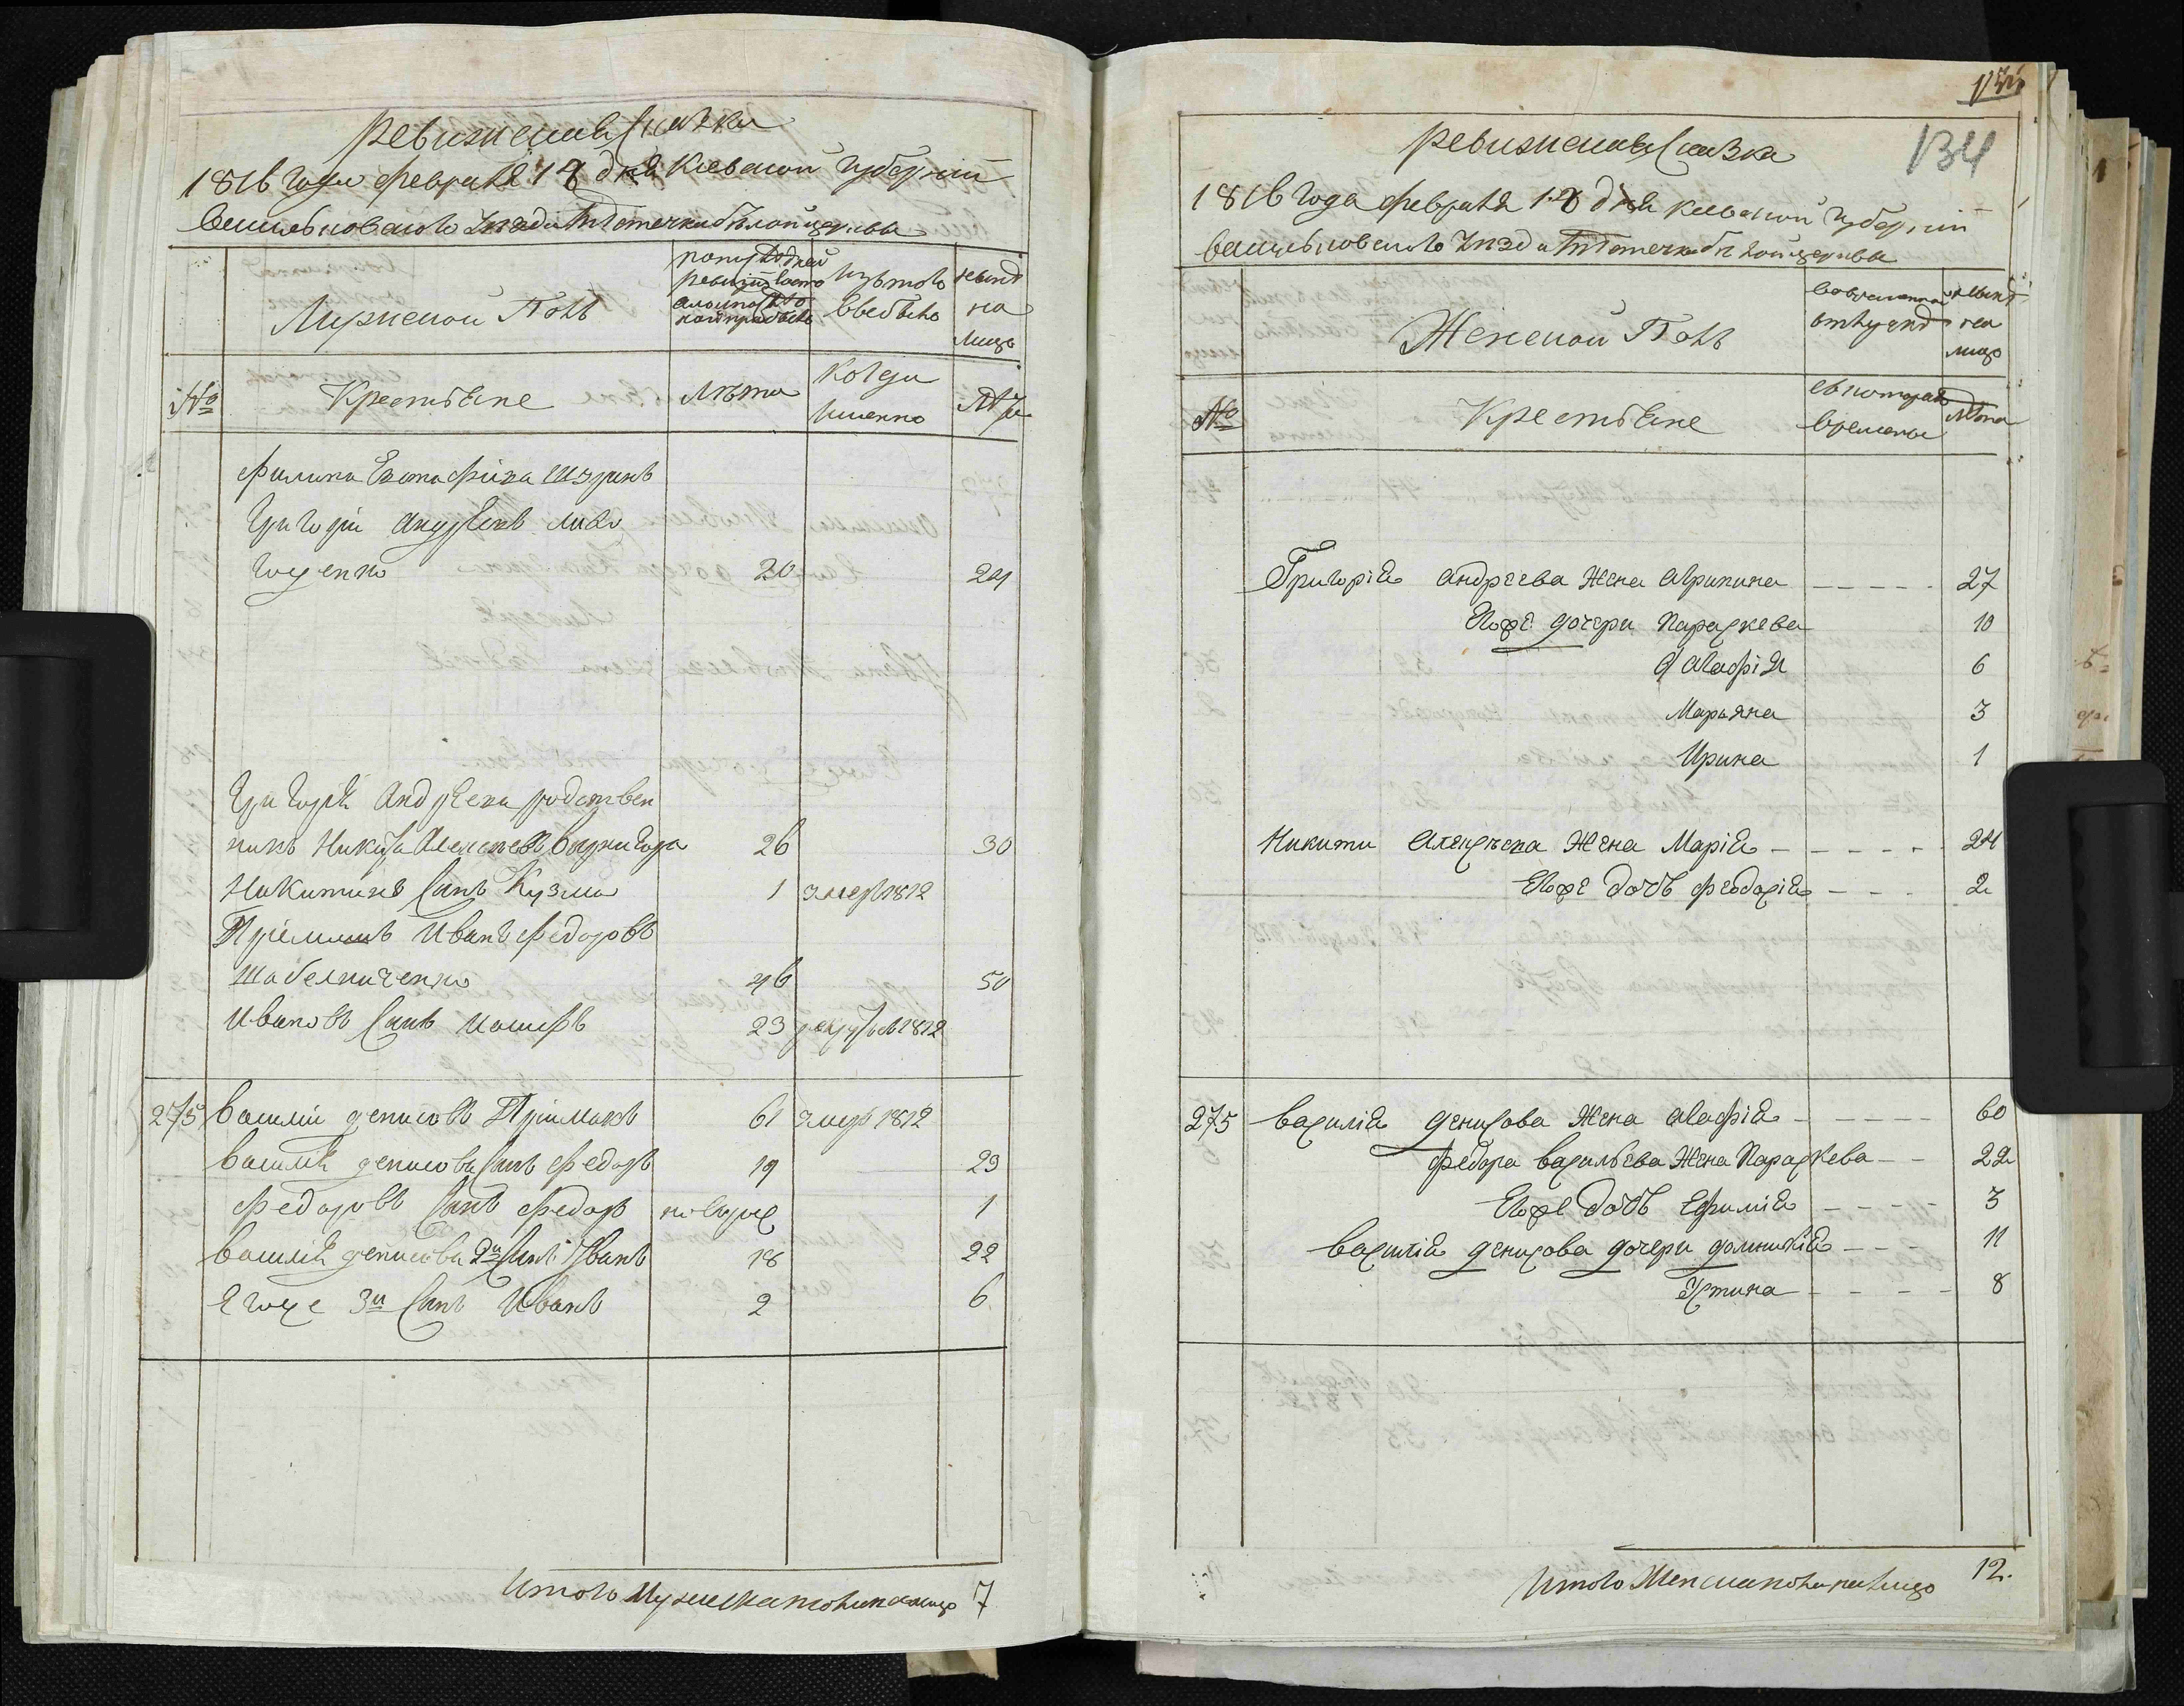 Ревижская Сказка
1816 года февраля 17 дня Киевской губернии
Васильковского Уезда местечка белой церкви
Мужеской Полъ
по последней ревизии состояло
изъ того выбыло
ныне на лицо
№
Крестьяне
Лѣта
когда именно
Лѣта
Григорій Андреевъ
20 24
Григорія Андреева родствен
никъ Никита Алексеевъ 26 30
Никитинъ Сынъ Кузма 1 умер 1812
Пріймакъ Иванъ Федоровъ
Шабелниченко 46 50
Ивановъ Сынъ Иосифъ 23 рекрут 1812
275 Василій денисовъ Пріймакъ 61 умер 1812
Василія денисова Сынъ Федоръ 19 23
Федоровъ Сынъ Федоръ новорож 1
Василія денисова 2й Сынъ Иванъ 18 22
Егоже 3й Сынъ Иванъ 2 6
Итого Мужеска пола на лицо 7
134
Ревижская Сказка
1816 года февраля 17 дня киевской губерніи
васильковского Уезда местечка белой церкви
Женской Полъ
во временной отлучке
ныне на лицо
№
Крестьяне
съ которого времени
Лѣта
Григорія андреева Жена Агрипина 27
Егоже дочери Параскева 10
Агафія 6
Марьяна 3
Ирина 1
Никиты Алексеева Жена Марія 24
Егоже дочь Феодосія 2
275 Василія денисова Жена Агафія 60
Федора васильева Жена Параскева 22
Егоже дочь Ефимія 3
Василія денисова дочери домникія 11
Устина 8
Итого Женска пола на лицо 12.